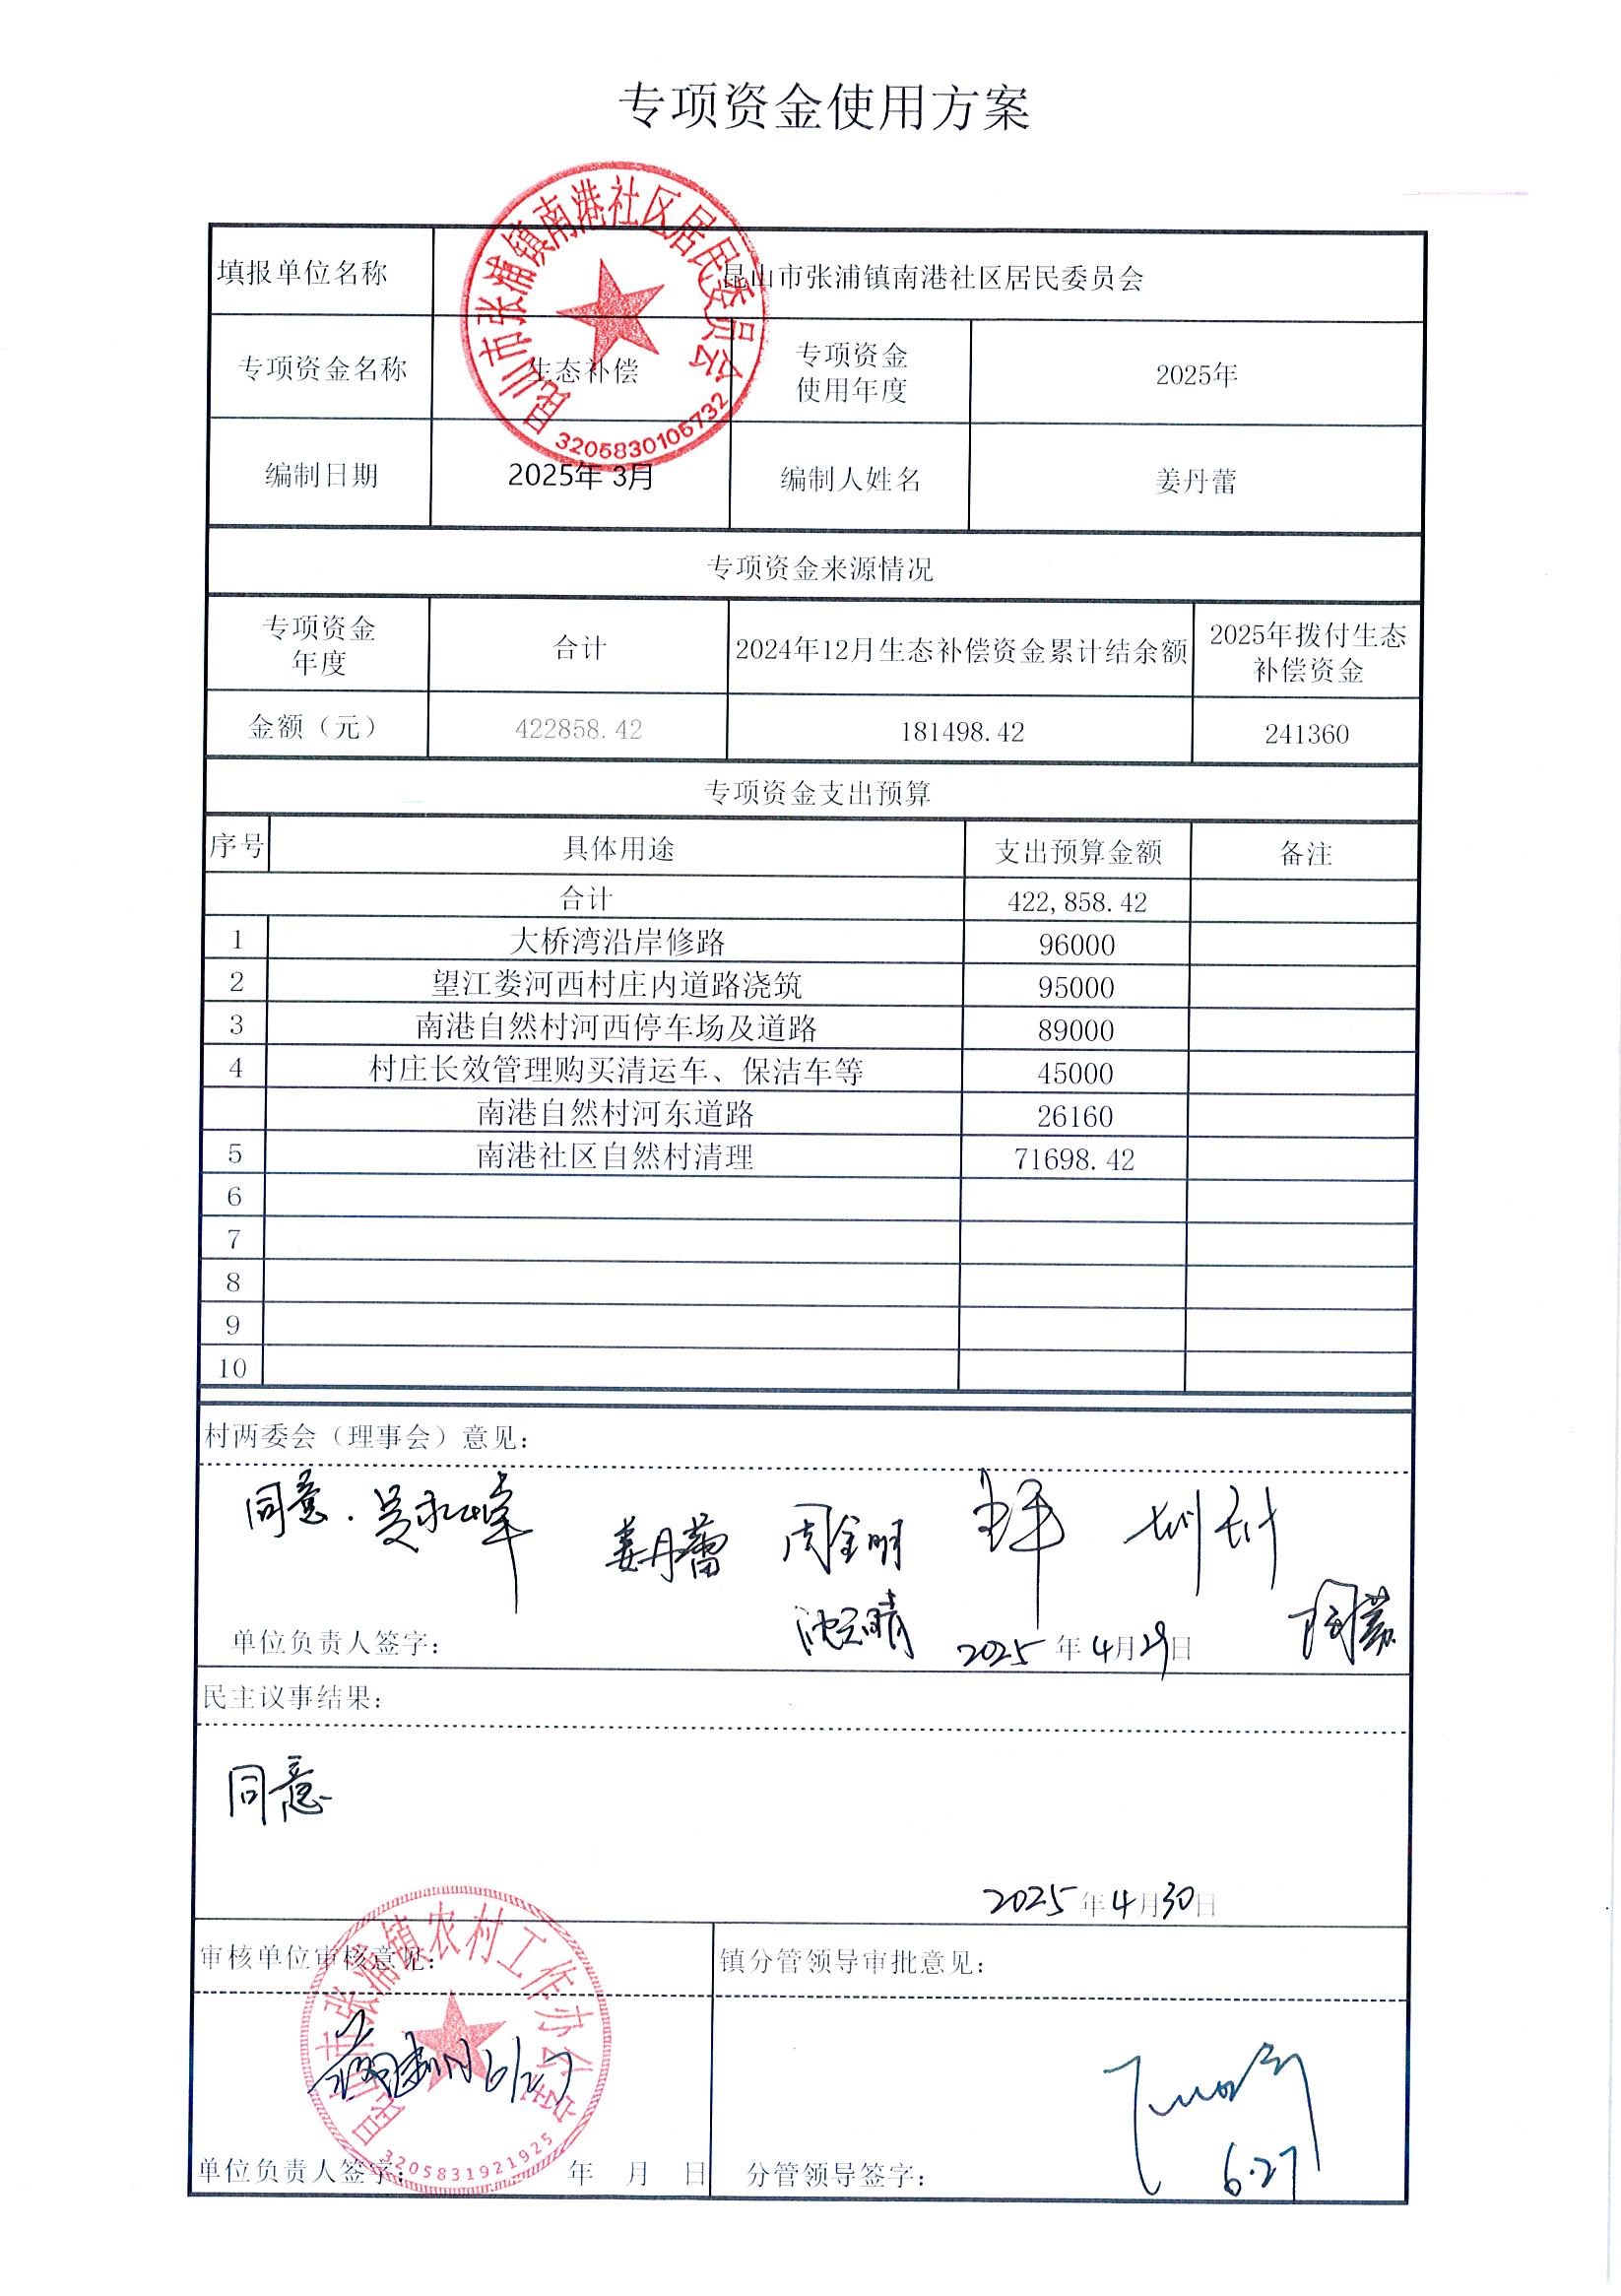 专项资金使用方案
昆山市张浦镇南港社区居民委员会
3205830105732
填报单位名称 昆山市张浦镇南港社区居民委员会
专项资金名称 生态补偿 专项资金使用年度 2025年
编制日期 2025年 3月 编制人姓名 姜丹蕾
专项资金来源情况
专项资金年度 合计 2024年12月生态补偿资金累计结余额 2025年拨付生态补偿资金
金额（元） 422858.42 181498.42 241360
专项资金支出预算
序号 具体用途 支出预算金额 备注
合计 422,858.42
1 大桥湾沿岸修路 96000
2 望江娄河西村庄内道路浇筑 95000
3 南港自然村河西停车场及道路 89000
4 村庄长效管理购买清运车、保洁车等 45000
南港自然村河东道路 26160
5 南港社区自然村清理 71698.42
6
7
8
9
10
村两委会（理事会）意见：
同意. 姜丹蕾 周金明
单位负责人签字： 2025年4月29日
民主议事结果：
同意
2025年4月30日
审核单位审核意见： 镇分管领导审批意见：
昆山市张浦镇农村工作办公室
6/27
3205831921925
单位负责人签字： 年 月 日 分管领导签字： 6.27